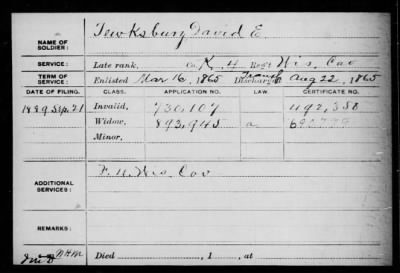 NAME OF SOLDIER: Tewksbury David E.
SERVICE: Late rank, Co. K, 4 Reg't Wis. Cav
TERM OF SERVICE: Enlisted Mar 16, 1865 Discharged Aug 22, 1865
DATE OF FILING. CLASS. APPLICATION NO. LAW. CERTIFICATE NO.
1889 Sep. 21 Invalid, 730,107 492,358
Widow, 893,945 a
Minor,
ADDITIONAL SERVICES: F. 4. Wis. Cav
REMARKS:
Died , 1 , at